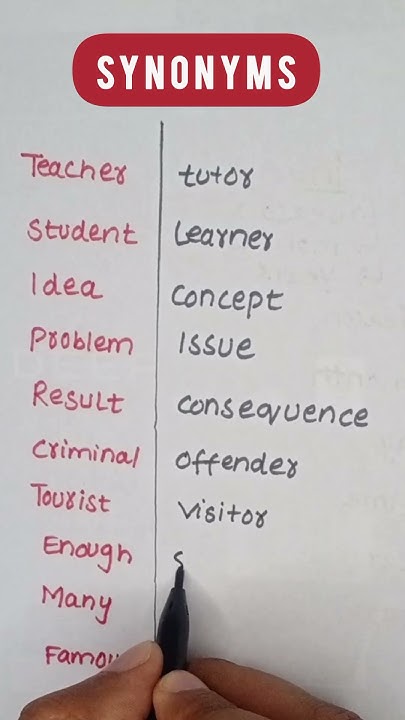 SYNONYMS
Teacher tutor
Student Learner
Idea concept
Problem Issue
Result consequence
Criminal offender
Tourist visitor
Enough s
Many
Famou